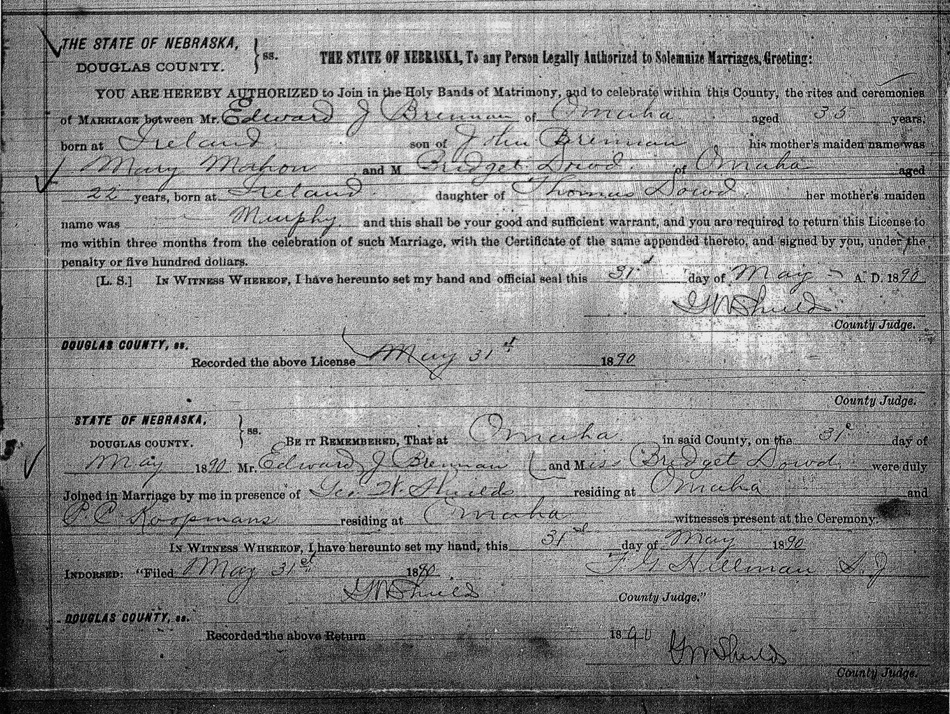 THE STATE OF NEBRASKA,
DOUGLAS COUNTY. } ss.
THE STATE OF NEBRASKA, To any Person Legally Authorized to Solemnize Marriages, Greeting:
YOU ARE HEREBY AUTHORIZED to Join in the Holy Bands of Matrimony, and to celebrate within this County, the rites and ceremonies
of MARRIAGE between Mr. Edward J Brennan of Omaha aged 35 years,
born at Ireland son of John Brennan his mother's maiden name was
Mary Mahon and M Bridget Dowd of Omaha aged
22 years, born at Ireland daughter of Thomas Dowd her mother's maiden
name was Murphy and this shall be your good and sufficient warrant, and you are required to return this License to
me within three months from the celebration of such Marriage, with the Certificate of the same appended thereto, and signed by you, under the
penalty or five hundred dollars.
[L. S.] IN WITNESS WHEREOF, I have hereunto set my hand and official seal this 31st day of May A. D. 1890
GW Shields
County Judge.
DOUGLAS COUNTY, ss.
Recorded the above License May 31st 1890
County Judge.
STATE OF NEBRASKA,
DOUGLAS COUNTY. } ss.
BE IT REMEMBERED, That at Omaha in said County, on the 31st day of
May 1890 Mr. Edward J Brennan and Miss Bridget Dowd were duly
Joined in Marriage by me in presence of Geo. W. Shields residing at Omaha and
P. C. Koopmans residing at Omaha witnesses present at the Ceremony.
IN WITNESS WHEREOF, I have hereunto set my hand, this 31st day of May 1890
INDORSED: "Filed May 31st 1890 F G Hillman S. J
GW Shields County Judge."
DOUGLAS COUNTY, ss.
Recorded the above Return 1890
GW Shields
County Judge.